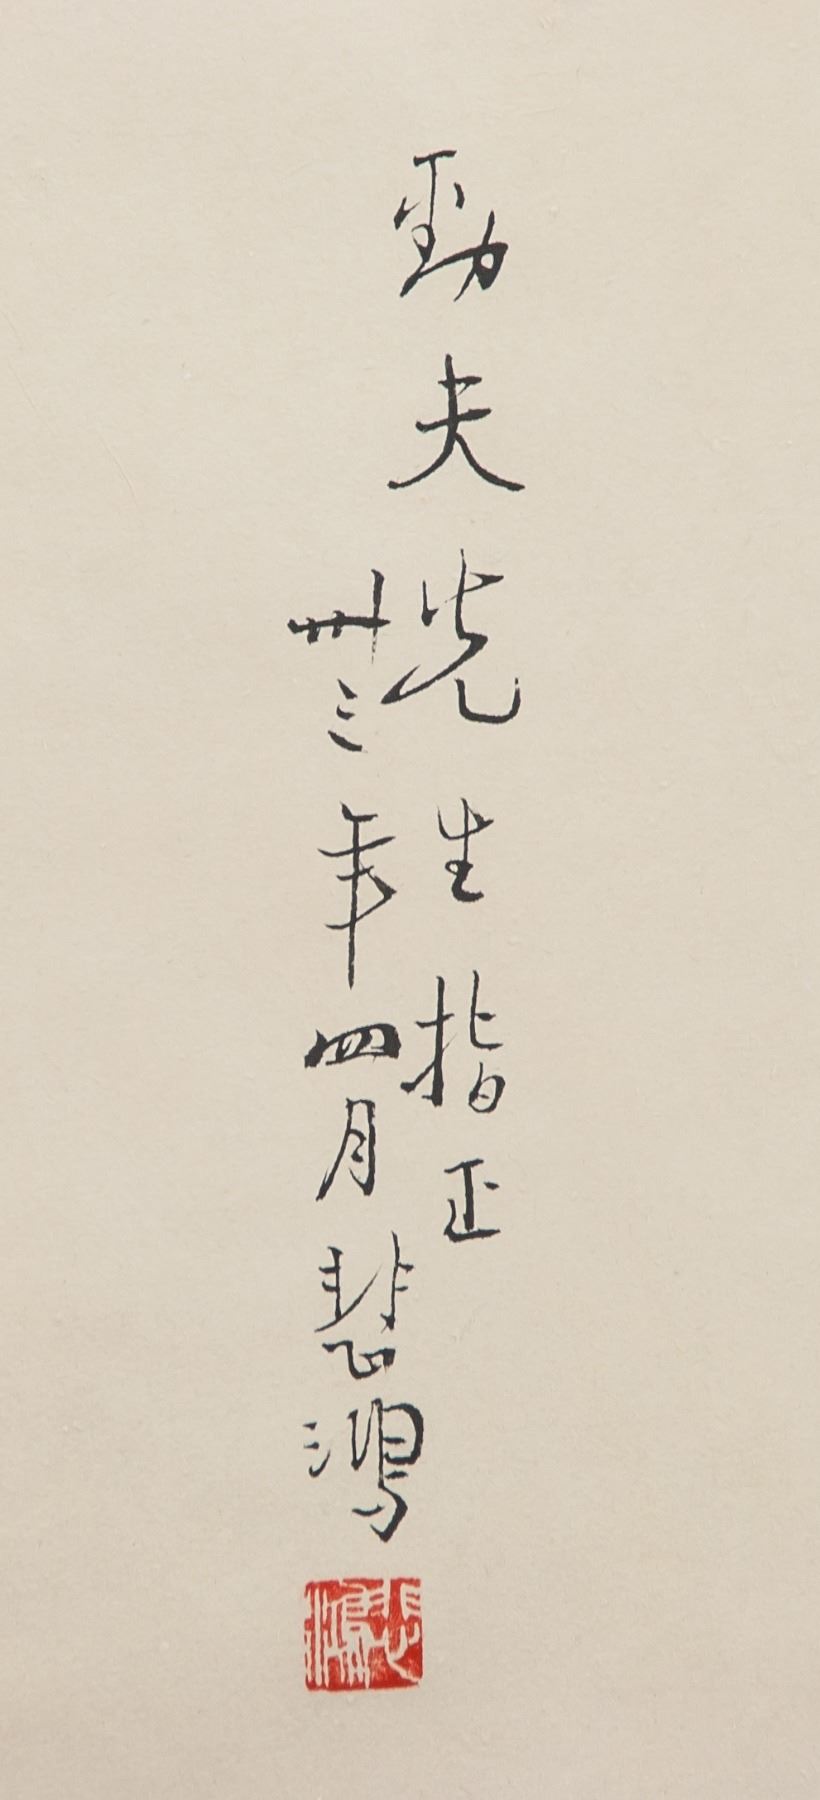 勁夫先生指正
卅三年四月悲鴻
悲鴻